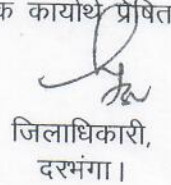 क कार्यार्थ प्रेषित
जिलाधिकारी,
दरभंगा।